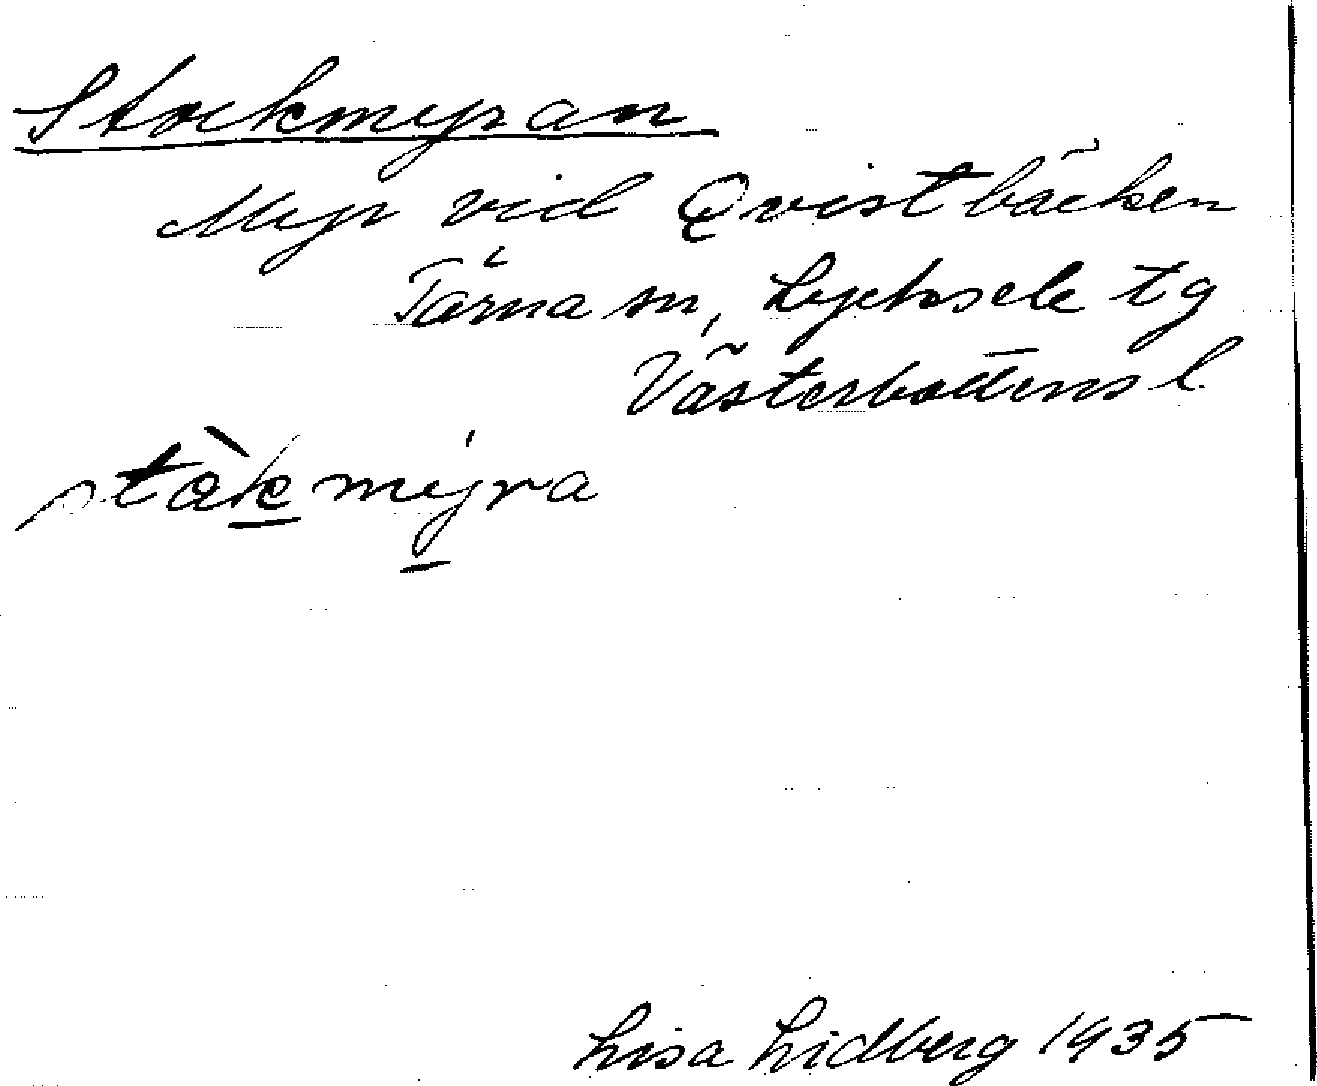 Stockmyran
Myr vid Qvistbäcken
Tärna sn, Lycksele tg
Västerbottens l.
stàkmyra
Lisa Lidberg 1935